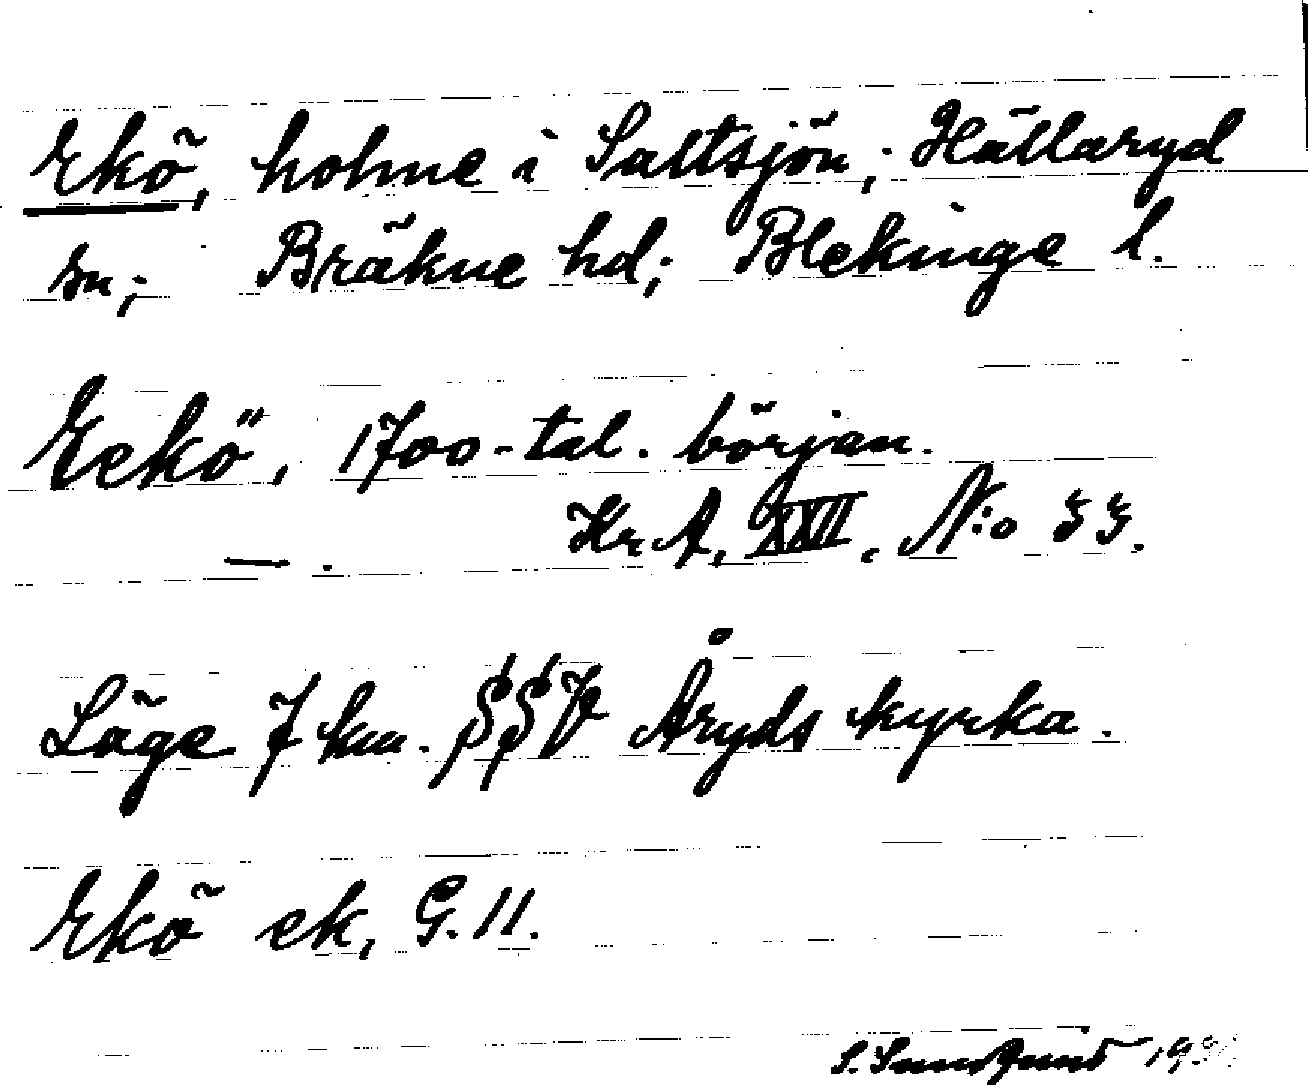 Ekö, holme i Saltsjön; Hällaryd
sn; Bräkne hd; Blekinge l.
Eckö, 1700-tal. början.
—. Kr.A, XXII. N:o 33.
Läge 7 km. SSV Åryds kyrka.
Ekö ek, G. 11.